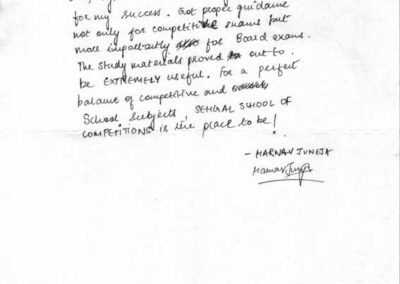 for my success. Got proper guidance
not only for competitive exams but
more importantly for Board exams.
The study materials proved to out to
be EXTREMELY useful. For a perfect
balance of competitive and
School subjects, SEHGAL SCHOOL OF
COMPETITIONS is the place to be!
- HARNAV JUNEJA
Harnav Juneja